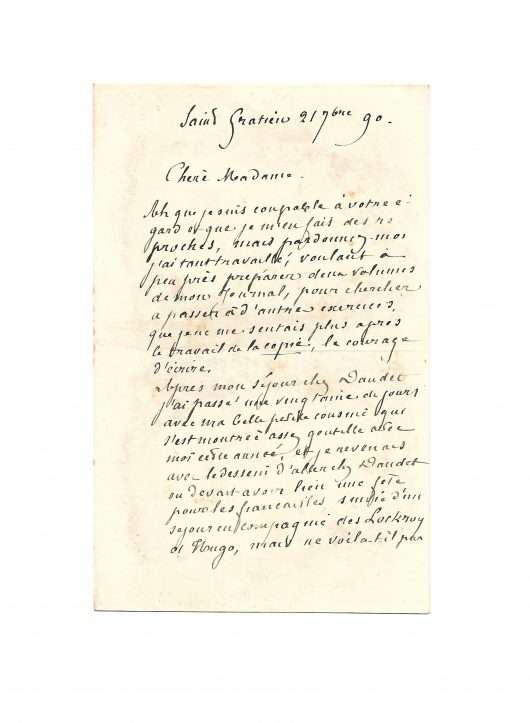 Saint Gratien 21 7bre 90.
Chère Madame.
Ah que je suis coupable à votre é-
gard et que je m'en fais des re
proches, mais pardonnez-moi
j'ai tant travaillé, voulant à
peu près préparer deux volumes
de mon Journal, pour chercher
à passer à d'autre exercices,
que je ne me sentais plus après
le travail de la copie, le courage
d'écrire.
Après mon séjour chez Daudet
j'ai passé une vingtaine de jours
avec ma belle petite cousine qui
s'est montrée assez gentille avec
moi cette année, et je revenais
avec le dessein d'aller chez Daudet
où devait avoir lieu une fête
pour les fiançailles suivie d'un
séjour en compagnie des Lockroy
et Hugo, mais ne voila-t-il pas